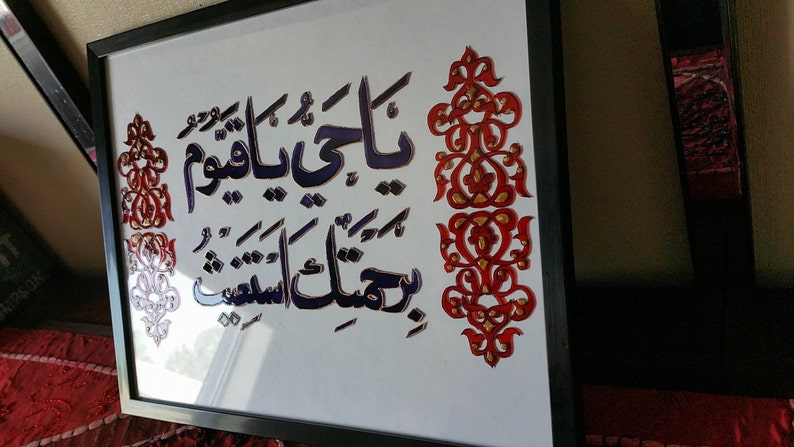 يَا حَيُّ يَا قَيُّومُ
بِرَحْمَتِكَ اَسْتَغِيثُ